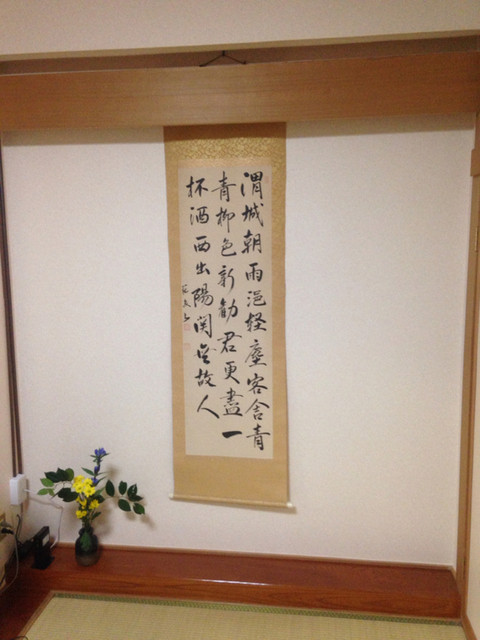 渭城朝雨浥軽塵客舎青
青柳色新勧君更盡一
杯酒西出陽関無故人